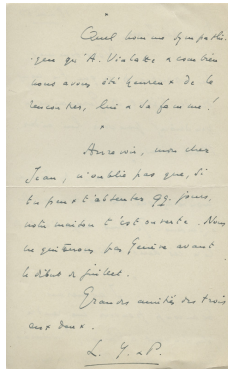 *
Quel homme sympathi-
que qu'A. Vialatte & combien
nous avons été heureux de le
rencontrer, lui & sa femme !
*
Au revoir, mon cher
Jean, n'oublie pas que, si
tu peux t'absenter qq. jours,
notre maison t'est ouverte. Nous
ne quitterons pas Genève avant
le début de juillet.
Grandes amitiés des trois
aux deux.
L. Y. & P.